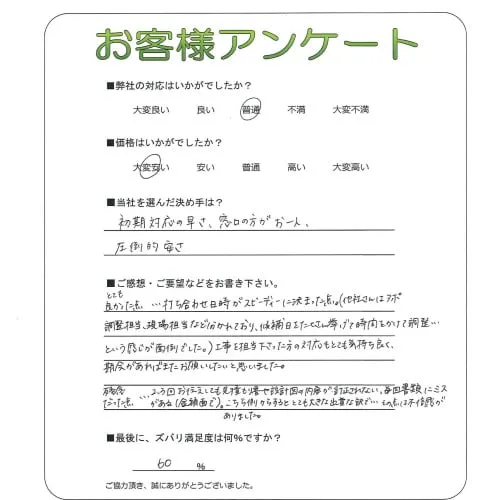 お客様アンケート
■弊社の対応はいかがでしたか？
大変良い 良い 普通 不満 大変不満
■価格はいかがでしたか？
大変安い 安い 普通 高い 大変高い
■当社を選んだ決め手は？
初期対応の早さ、窓口の方がお一人、
圧倒的安さ
■ご感想・ご要望などをお書き下さい。
とても
良かった点 …打ち合わせ日時がスピーディーに決まった点。(他社さんはアポ
調整担当、現場担当など分かれており、候補日をたくさん挙げて時間をかけて調整…
という感じが面倒でした。)工事を担当下さった方の対応もとても気持ち良く、
機会があればまたお願いしたいと思いました。
残念
だった点 …2,3回お伝えしても見積も書や設計図の内容が訂正されない、毎回書類にミス
がある(金額面で)。こちら側からするととても大きな出費な訳で…その点は不信感が
ありました。
■最後に、ズバリ満足度は何%ですか？
60 %
ご協力頂き、誠にありがとうございました。